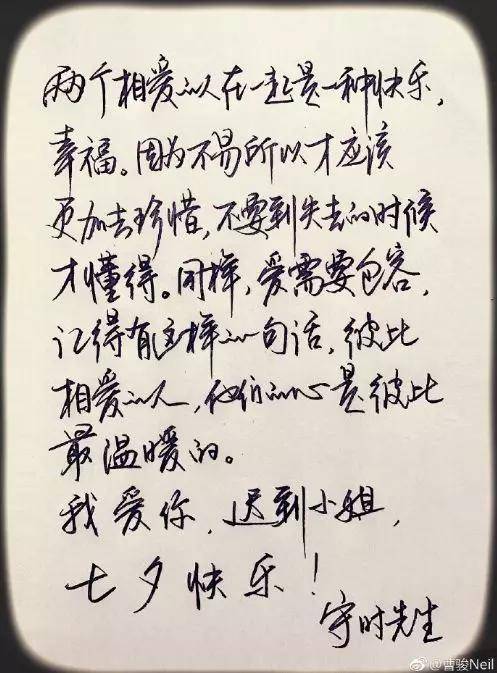 两个相爱的人在一起是一种快乐,
幸福。因为不易所以才应该
更加去珍惜,不要到失去的时候
才懂得。同样,爱需要包容,
记得有这样的一句话,彼此
相爱的人,他们的心是彼此
最温暖的。
我爱你,迟到小姐,
七夕快乐!
守时先生
@曹骏Neil